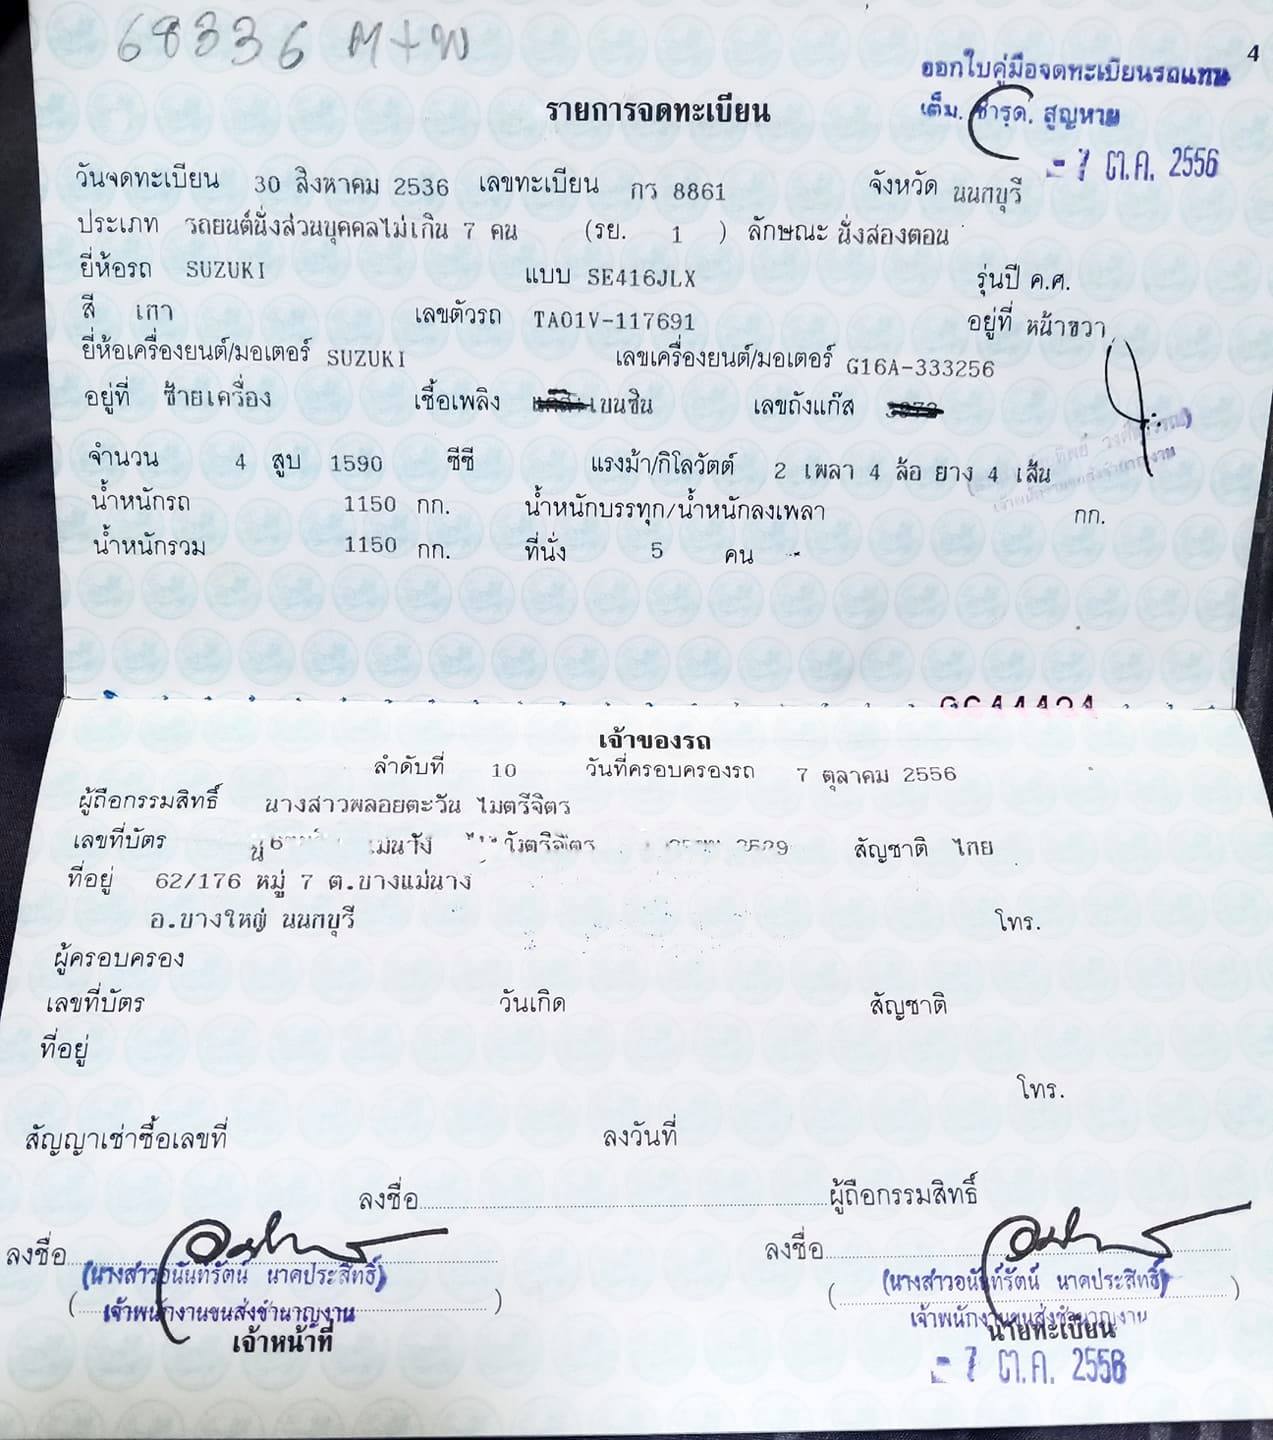 68336 M+W
4
ออกใบคู่มือจดทะเบียนรถแทน
เต็ม. ชำรุด. สูญหาย
- 7 ต.ค. 2556
รายการจดทะเบียน
วันจดทะเบียน 30 สิงหาคม 2536 เลขทะเบียน กว 8861 จังหวัด นนทบุรี
ประเภท รถยนต์นั่งส่วนบุคคลไม่เกิน 7 คน (รย. 1 ) ลักษณะ นั่งสองตอน
ยี่ห้อรถ SUZUKI แบบ SE416JLX รุ่นปี ค.ศ.
สี เทา เลขตัวรถ TA01V-117691 อยู่ที่ หน้าขวา
ยี่ห้อเครื่องยนต์/มอเตอร์ SUZUKI เลขเครื่องยนต์/มอเตอร์ G16A-333256
อยู่ที่ ซ้ายเครื่อง เชื้อเพลิง เบนซิน เลขถังแก๊ส
จำนวน 4 สูบ 1590 ซีซี แรงม้า/กิโลวัตต์ 2 เพลา 4 ล้อ ยาง 4 เส้น
น้ำหนักรถ 1150 กก. น้ำหนักบรรทุก/น้ำหนักลงเพลา กก.
น้ำหนักรวม 1150 กก. ที่นั่ง 5 คน
เจ้าของรถ
ลำดับที่ 10 วันที่ครอบครองรถ 7 ตุลาคม 2556
ผู้ถือกรรมสิทธิ์ นางสาวพลอยตะวัน ไมตรีจิตร
เลขที่บัตร สัญชาติ ไทย
ที่อยู่ 62/176 หมู่ 7 ต.บางแม่นาง
อ.บางใหญ่ นนทบุรี โทร.
ผู้ครอบครอง
เลขที่บัตร วันเกิด สัญชาติ
ที่อยู่
โทร.
สัญญาเช่าซื้อเลขที่ ลงวันที่
ลงชื่อ ผู้ถือกรรมสิทธิ์
ลงชื่อ ลงชื่อ
(นางสาวอนันท์รัตน์ นาคประสิทธิ์) (นางสาวอนันท์รัตน์ นาคประสิทธิ์)
เจ้าพนักงานขนส่งชำนาญงาน เจ้าพนักงานขนส่งชำนาญงาน
เจ้าหน้าที่ นายทะเบียน
- 7 ต.ค. 2556